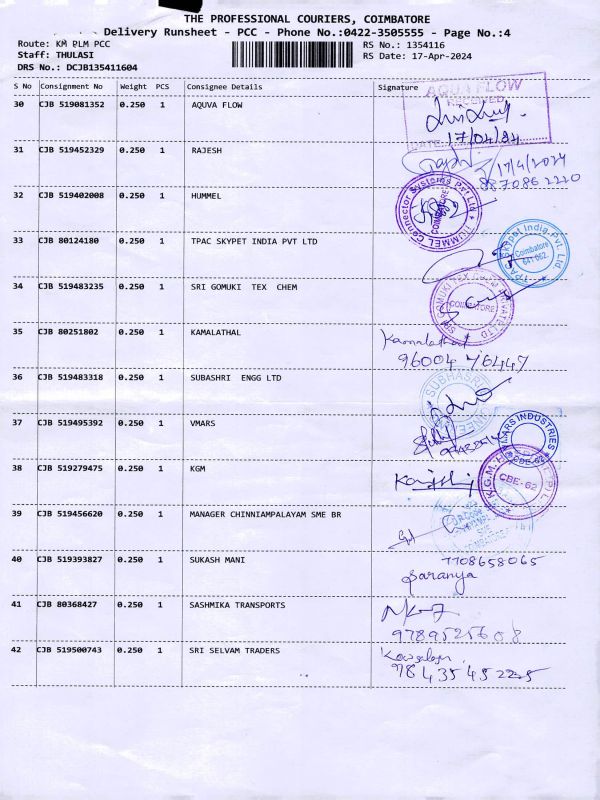 THE PROFESSIONAL COURIERS, COIMBATORE
Delivery Runsheet - PCC - Phone No.:0422-3505555 - Page No.:4
Route: KM PLM PCC
RS No.: 1354116
Staff: THULASI
RS Date: 17-Apr-2024
DRS No.: DCJB135411604
S No Consignment No Weight PCS Consignee Details Signature
30 CJB 519081352 0.250 1 AQUVA FLOW
AQUA FLOW
RECEIVED
17/04/24
DATE
31 CJB 519452329 0.250 1 RAJESH
17/4/2024
8870862220
32 CJB 519402008 0.250 1 HUMMEL
HUMMEL Connector Systems Pvt Ltd
COIMBATORE
33 CJB 80124180 0.250 1 TPAC SKYPET INDIA PVT LTD
TPAC Skypet India Pvt. Ltd
Coimbatore
641 062
34 CJB 519483235 0.250 1 SRI GOMUKI TEX CHEM
SRI GOMUKI TEX
COIMBATORE
35 CJB 80251802 0.250 1 KAMALATHAL
Kamalathal
96004 76447
36 CJB 519483318 0.250 1 SUBASHRI ENGG LTD
SUBHASRI
37 CJB 519495392 0.250 1 VMARS
VMARS INDUSTRIES
CBE-62
38 CJB 519279475 0.250 1 KGM
K.G.M.
CBE-62
39 CJB 519456620 0.250 1 MANAGER CHINNIAMPALAYAM SME BR
40 CJB 519393827 0.250 1 SUKASH MANI
7708658065
Saranya
41 CJB 80368427 0.250 1 SASHMIKA TRANSPORTS
9789525608
42 CJB 519500743 0.250 1 SRI SELVAM TRADERS
98435452225